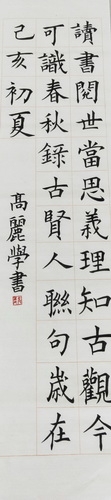 讀書閱世當思義理知古觀今
可識春秋錄古賢人聯句歲在
己亥初夏
高麗學書